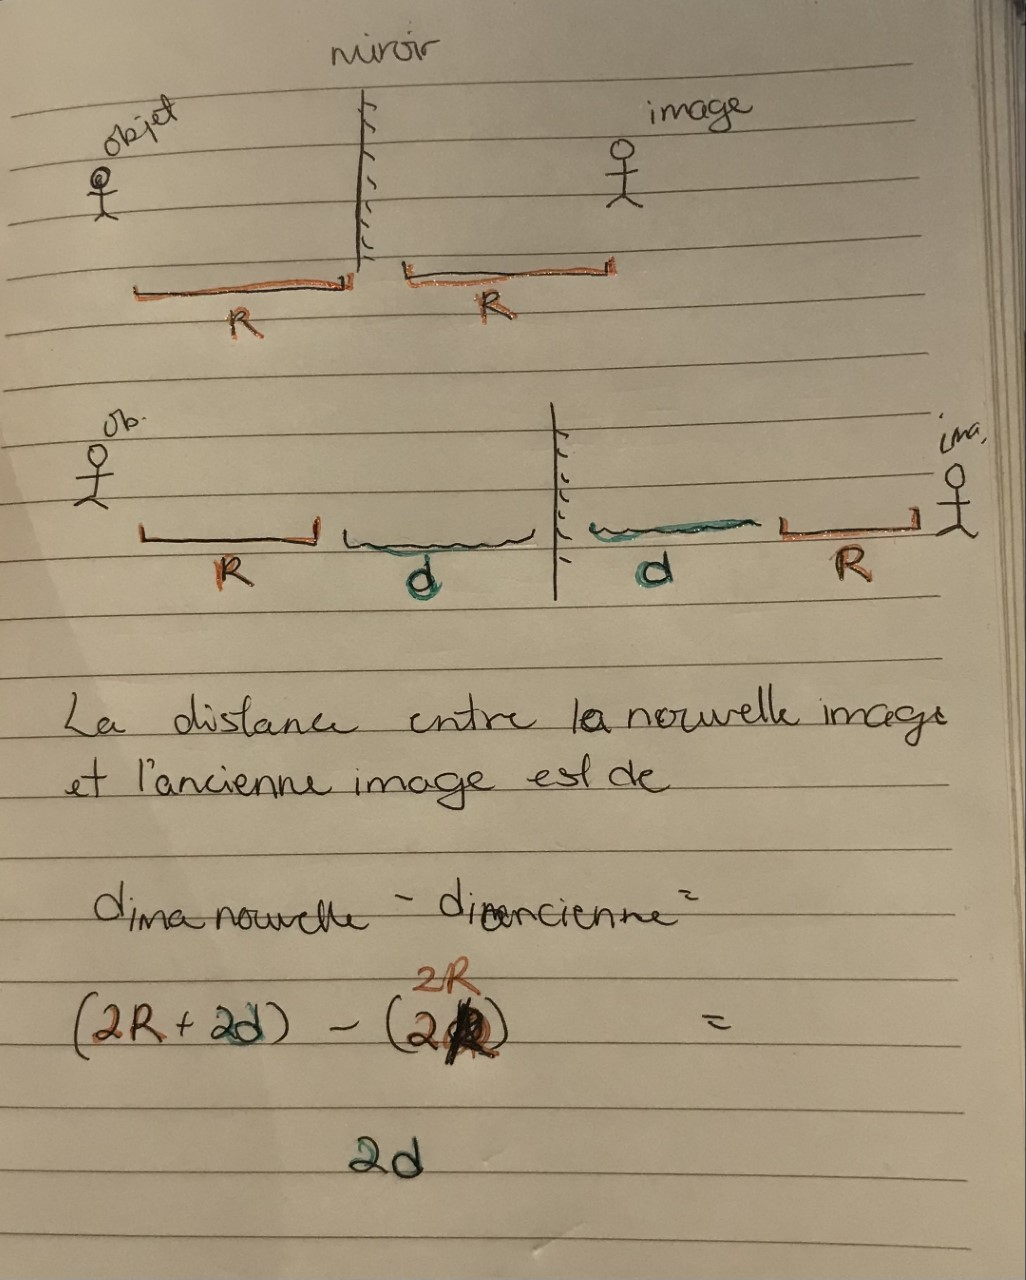 miroir
objet
image
R
R
ob.
ima.
R
d
d
R
La distance entre la nouvelle image
et l'ancienne image est de
dima nouvelle - dimancienne =
2R
(2R + 2d) - (2R) =
2d